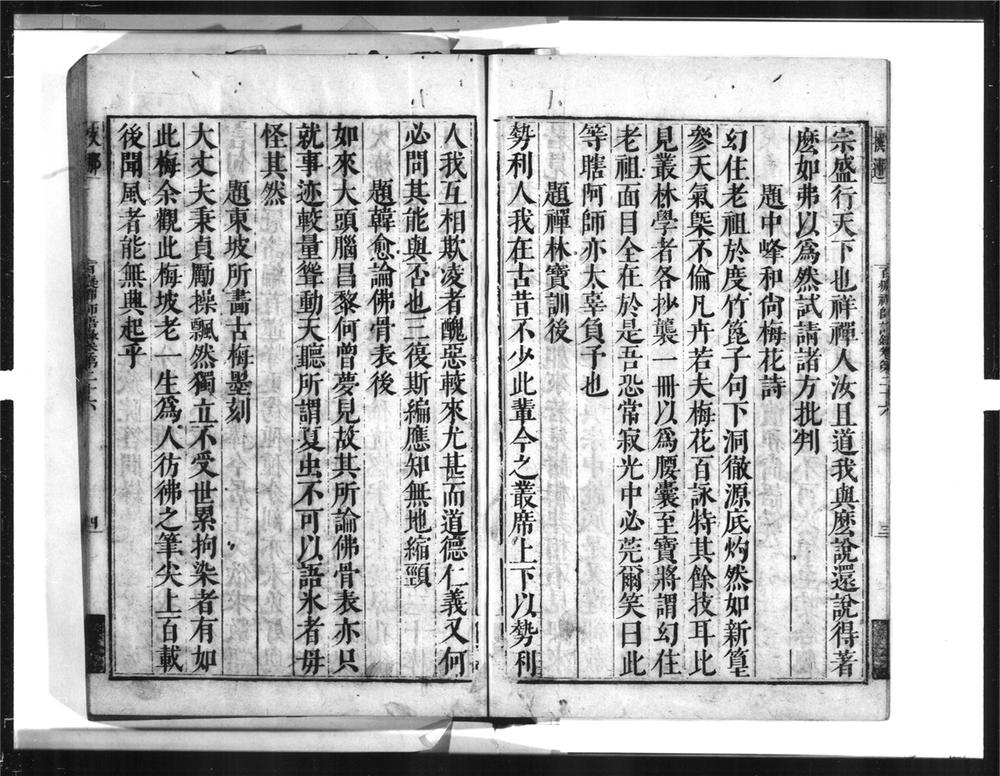 宗盛行天下也祥禪人汝且道我與麽說還說得著
麽如弗以爲然試請諸方批判
題中峰和尙梅花詩
幻住老祖於度竹篦子句下洞徹源底灼然如新篁
參天氣槩不倫凡卉若夫梅花百詠特其餘技耳比
見叢林學者各抄襲一冊以爲腰囊至寶將謂幻住
老祖面目全在於是吾恐常寂光中必莞爾笑曰此
等瞎阿師亦太辜負予也
題禪林寶訓後
勢利人我在古昔不少此輩今之叢席上下以勢利
人我互相欺凌者醜惡較來尤甚而道德仁義又何
必問其能與否也三復斯編應知無地縮頸
題韓愈論佛骨表後
如來大頭腦昌黎何曾夢見故其所論佛骨表亦只
就事迹較量聳動天聽所謂夏虫不可以語氷者毋
怪其然
題東坡所畵古梅墨刻
大丈夫秉貞勵操飄然獨立不受世累拘染者有如
此梅余觀此梅坡老一生爲人彷彿之筆尖上百載
後聞風者能無興起乎
三
四